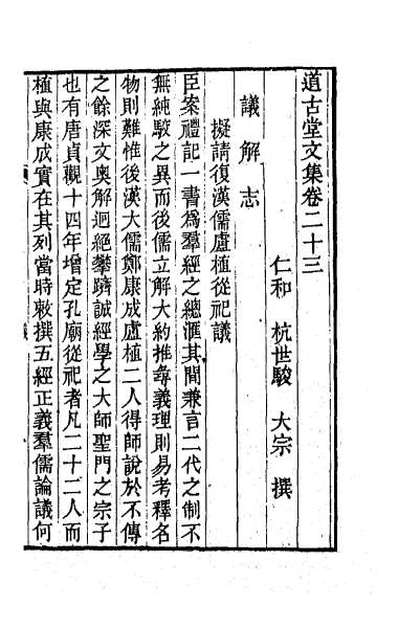 道古堂文集卷二十三
仁和 杭世駿 大宗 撰
議 解 志
擬請復漢儒盧植從祀議
臣案禮記一書爲羣經之總滙其間兼言二代之制不
無純駮之異而後儒立解大約推尋義理則易考釋名
物則難惟後漢大儒鄭康成盧植二人得師說於不傳
之餘深文奧解迥絕攀躋誠經學之大師聖門之宗子
也有唐貞觀十四年增定孔廟從祀者凡二十二人而
植與康成實在其列當時敕撰五經正義羣儒論議何